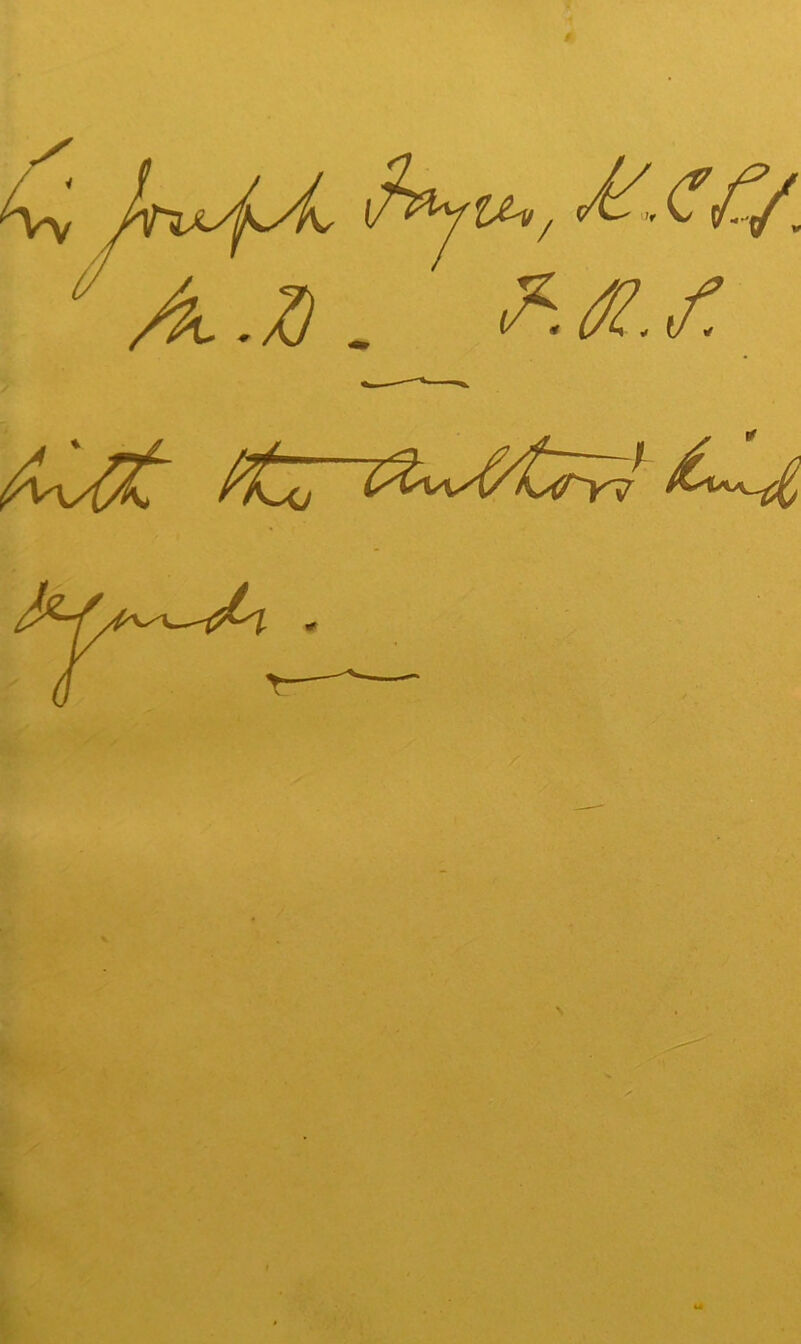 Sir Joseph Fayrer, K.C.S.I.
M.D. F.R.S.
With the Author's kind
regards.